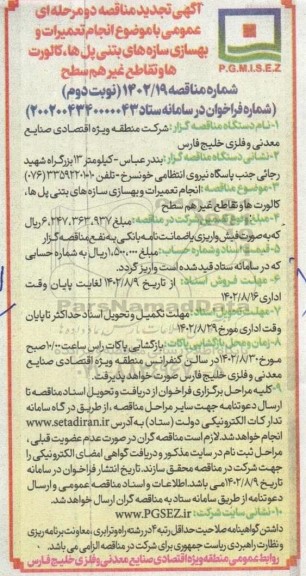 آگهی تجدید مناقصه دو مرحله ای
عمومی با موضوع انجام تعمیرات و
بهسازی سازه های بتنی پل ها، کالورت
ها و تقاطع غیر هم سطح
P.G.M.I.S.E.Z
شماره مناقصه ۱۴۰۲/۱۹ (نوبت دوم)
(شماره فراخوان در سامانه ستاد ۲۰۰۲۰۰۴۳۴۰۰۰۰۰۴۳)
۱- نام دستگاه مناقصه گزار: شرکت منطقه ویژه اقتصادی صنایع
معدنی و فلزی خلیج فارس
۲- نشانی دستگاه مناقصه گزار: بندر عباس - کیلومتر ۱۳ بزرگراه شهید
رجائی جنب پاسگاه نیروی انتظامی خونسرخ - تلفن ۳۳۵۹۲۲۰۱۰۱ (۰۷۶)
۳- موضوع مناقصه: انجام تعمیرات و بهسازی سازه های بتنی پل ها،
کالورت ها و تقاطع غیر هم سطح
۴- مبلغ تضمین شرکت در مناقصه: مبلغ ۶,۲۴۷,۳۶۳,۹۳۷ ریال
که به صورت فیش واریزی یا ضمانت نامه بانکی به نفع مناقصه گزار
۵- قیمت اسناد و شماره حساب: مبلغ ۱,۵۰۰,۰۰۰ ریال به شماره حسابی
که در سامانه ستاد قید شده است واریز گردد.
۶- مهلت فروش اسناد: از تاریخ ۱۴۰۲/۸/۹ لغایت پایان وقت
اداری ۱۴۰۲/۸/۱۶
۷- مهلت تحویل اسناد: مهلت تکمیل و تحویل اسناد حداکثر تا پایان
وقت اداری مورخ ۱۴۰۲/۸/۲۹
۸- زمان و محل بازگشایی پاکات: بازگشایی پاکات راس ساعت ۱۰/۰۰ صبح
مورخ ۱۴۰۲/۸/۳۰ در سالن کنفرانس منطقه ویژه اقتصادی صنایع
معدنی و فلزی خلیج فارس صورت خواهد پذیرفت.
۹- کلیه مراحل برگزاری فراخوان از دریافت و تحویل اسناد مناقصه تا
ارسال دعوتنامه جهت سایر مراحل مناقصه، از طریق درگاه سامانه
تدارکات الکترونیکی دولت (ستاد) به آدرس www.setadiran.ir
انجام خواهد شد. لازم است مناقصه گران در صورت عدم عضویت قبلی،
مراحل ثبت نام در سایت مذکور و دریافت گواهی امضای الکترونیکی را
جهت شرکت در مناقصه محقق سازند. تاریخ انتشار فراخوان در سامانه
تاریخ ۱۴۰۲/۸/۹ می باشد. اطلاعات و اسناد مناقصه عمومی و ارسال
دعوتنامه از طریق سامانه ستاد به مناقصه گران ارسال خواهد شد.
۱۰- نشانی سایت شرکت: www.PGSEZ.ir
داشتن گواهینامه صلاحیت حداقل رتبه ۴ در رشته راه و ترابری، معاونت برنامه ریزی
و نظارت راهبردی ریاست جمهوری برای شرکت در مناقصه الزامی می باشد.
روابط عمومی منطقه ویژه اقتصادی صنایع معدنی و فلزی خلیج فارس